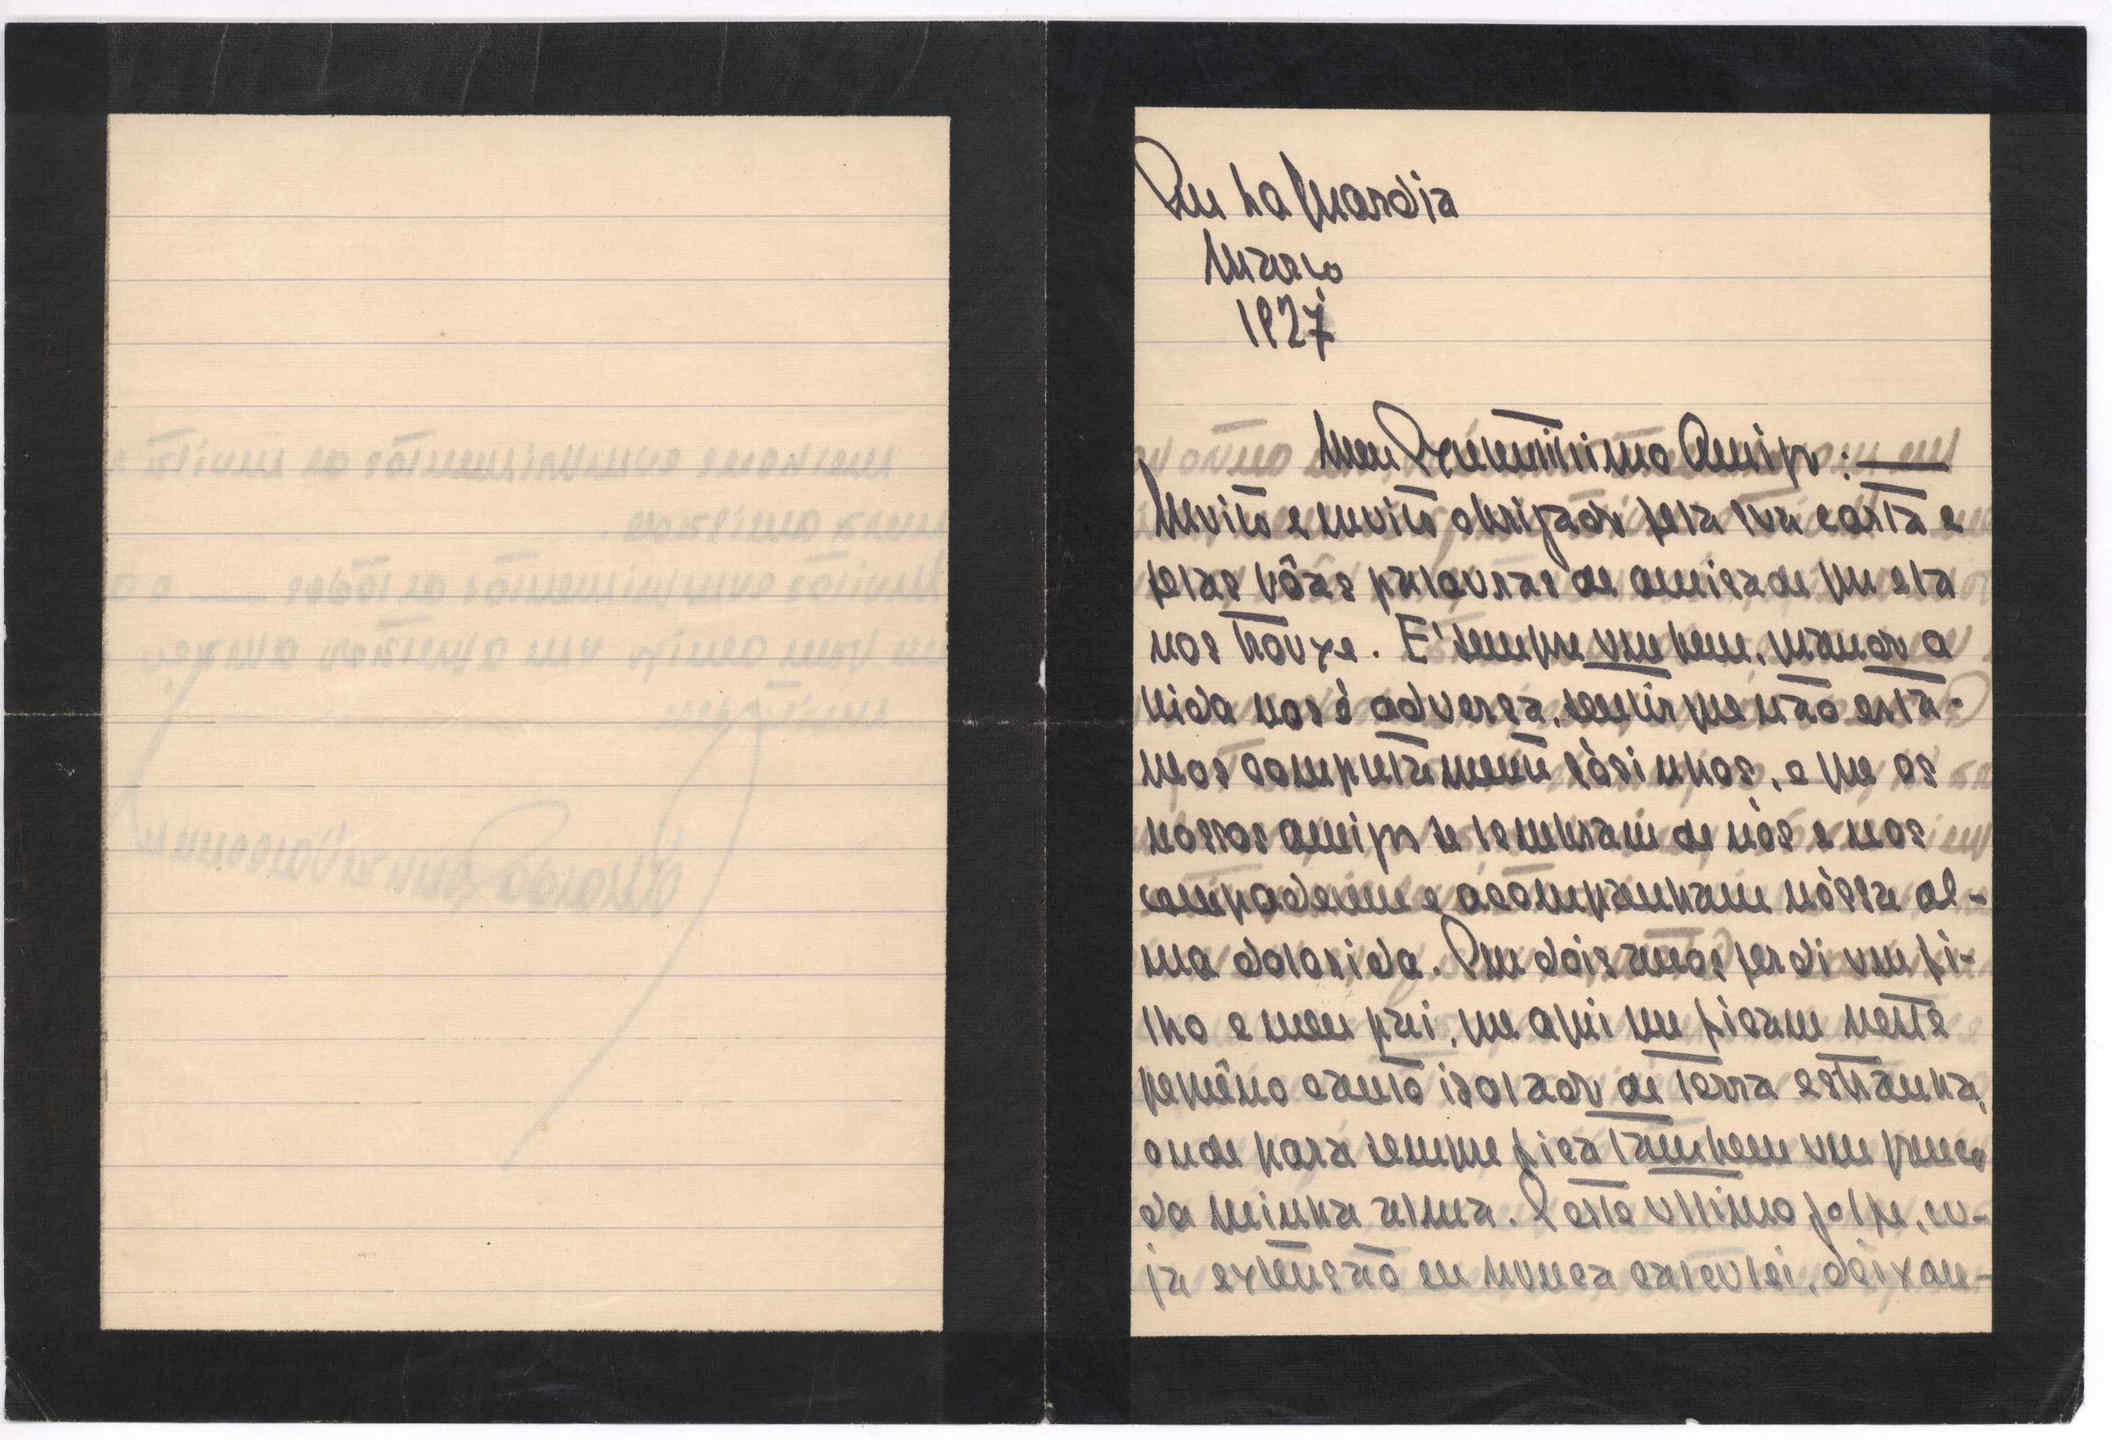 Em La Guardia
Março
1927
Meu Excellentissimo Amigo : —
Muito e muito obrigado pela tua carta e
pelas bôas palavras de amisade que ela
nos trouxe. E' sempre um bem, quando a
vida nos é adversa, sentir que não esta-
mos completamente sòsinhos, e que os
nossos amigos se lembram de nós e nos
compadecem e acompanham nóssa al-
ma dolorida. Em dois anos perdi um fi-
lho e meu pai, que aqui me ficam neste
pequêno canto isolado de terra estranha,
onde para sempre fica tambem um pouco
da minha alma. Este ultimo golpe, cu-
ja extensão eu nunca calculei, deixou-